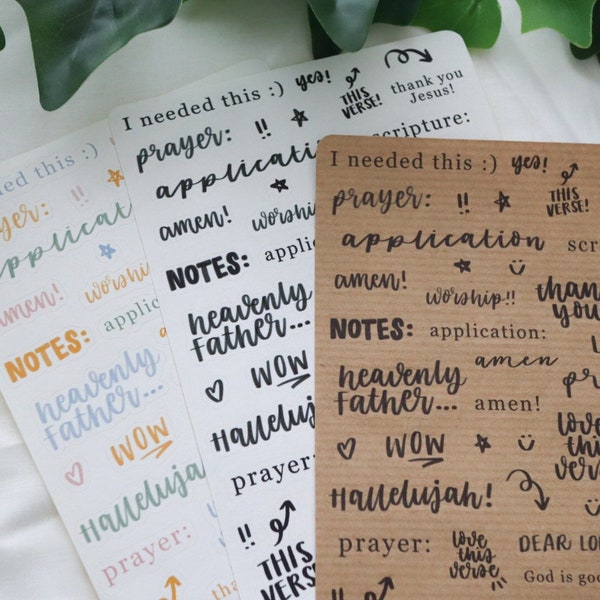 eded this :)
prayer:
!!
application
amen!
worship
NOTES:
applic
heavenly
Father...
WOW
Hallelujah
prayer:
I needed this :) yes!
THIS
VERSE!
thank you
Jesus!
prayer: !!
scripture:
application
amen!
worship
NOTES:
applic
heavenly
Father...
WOW
Hallelujah
prayer:
!!
THIS
VERSE!
I needed this :) yes!
THIS
VERSE!
prayer: !!
application scr
amen!
worship!!
than
you
NOTES: application:
amen
heavenly
Father...
amen!
pr
love
this
verse
WOW
Hallelujah!
prayer:
love
this
verse
DEAR LO
God is goo